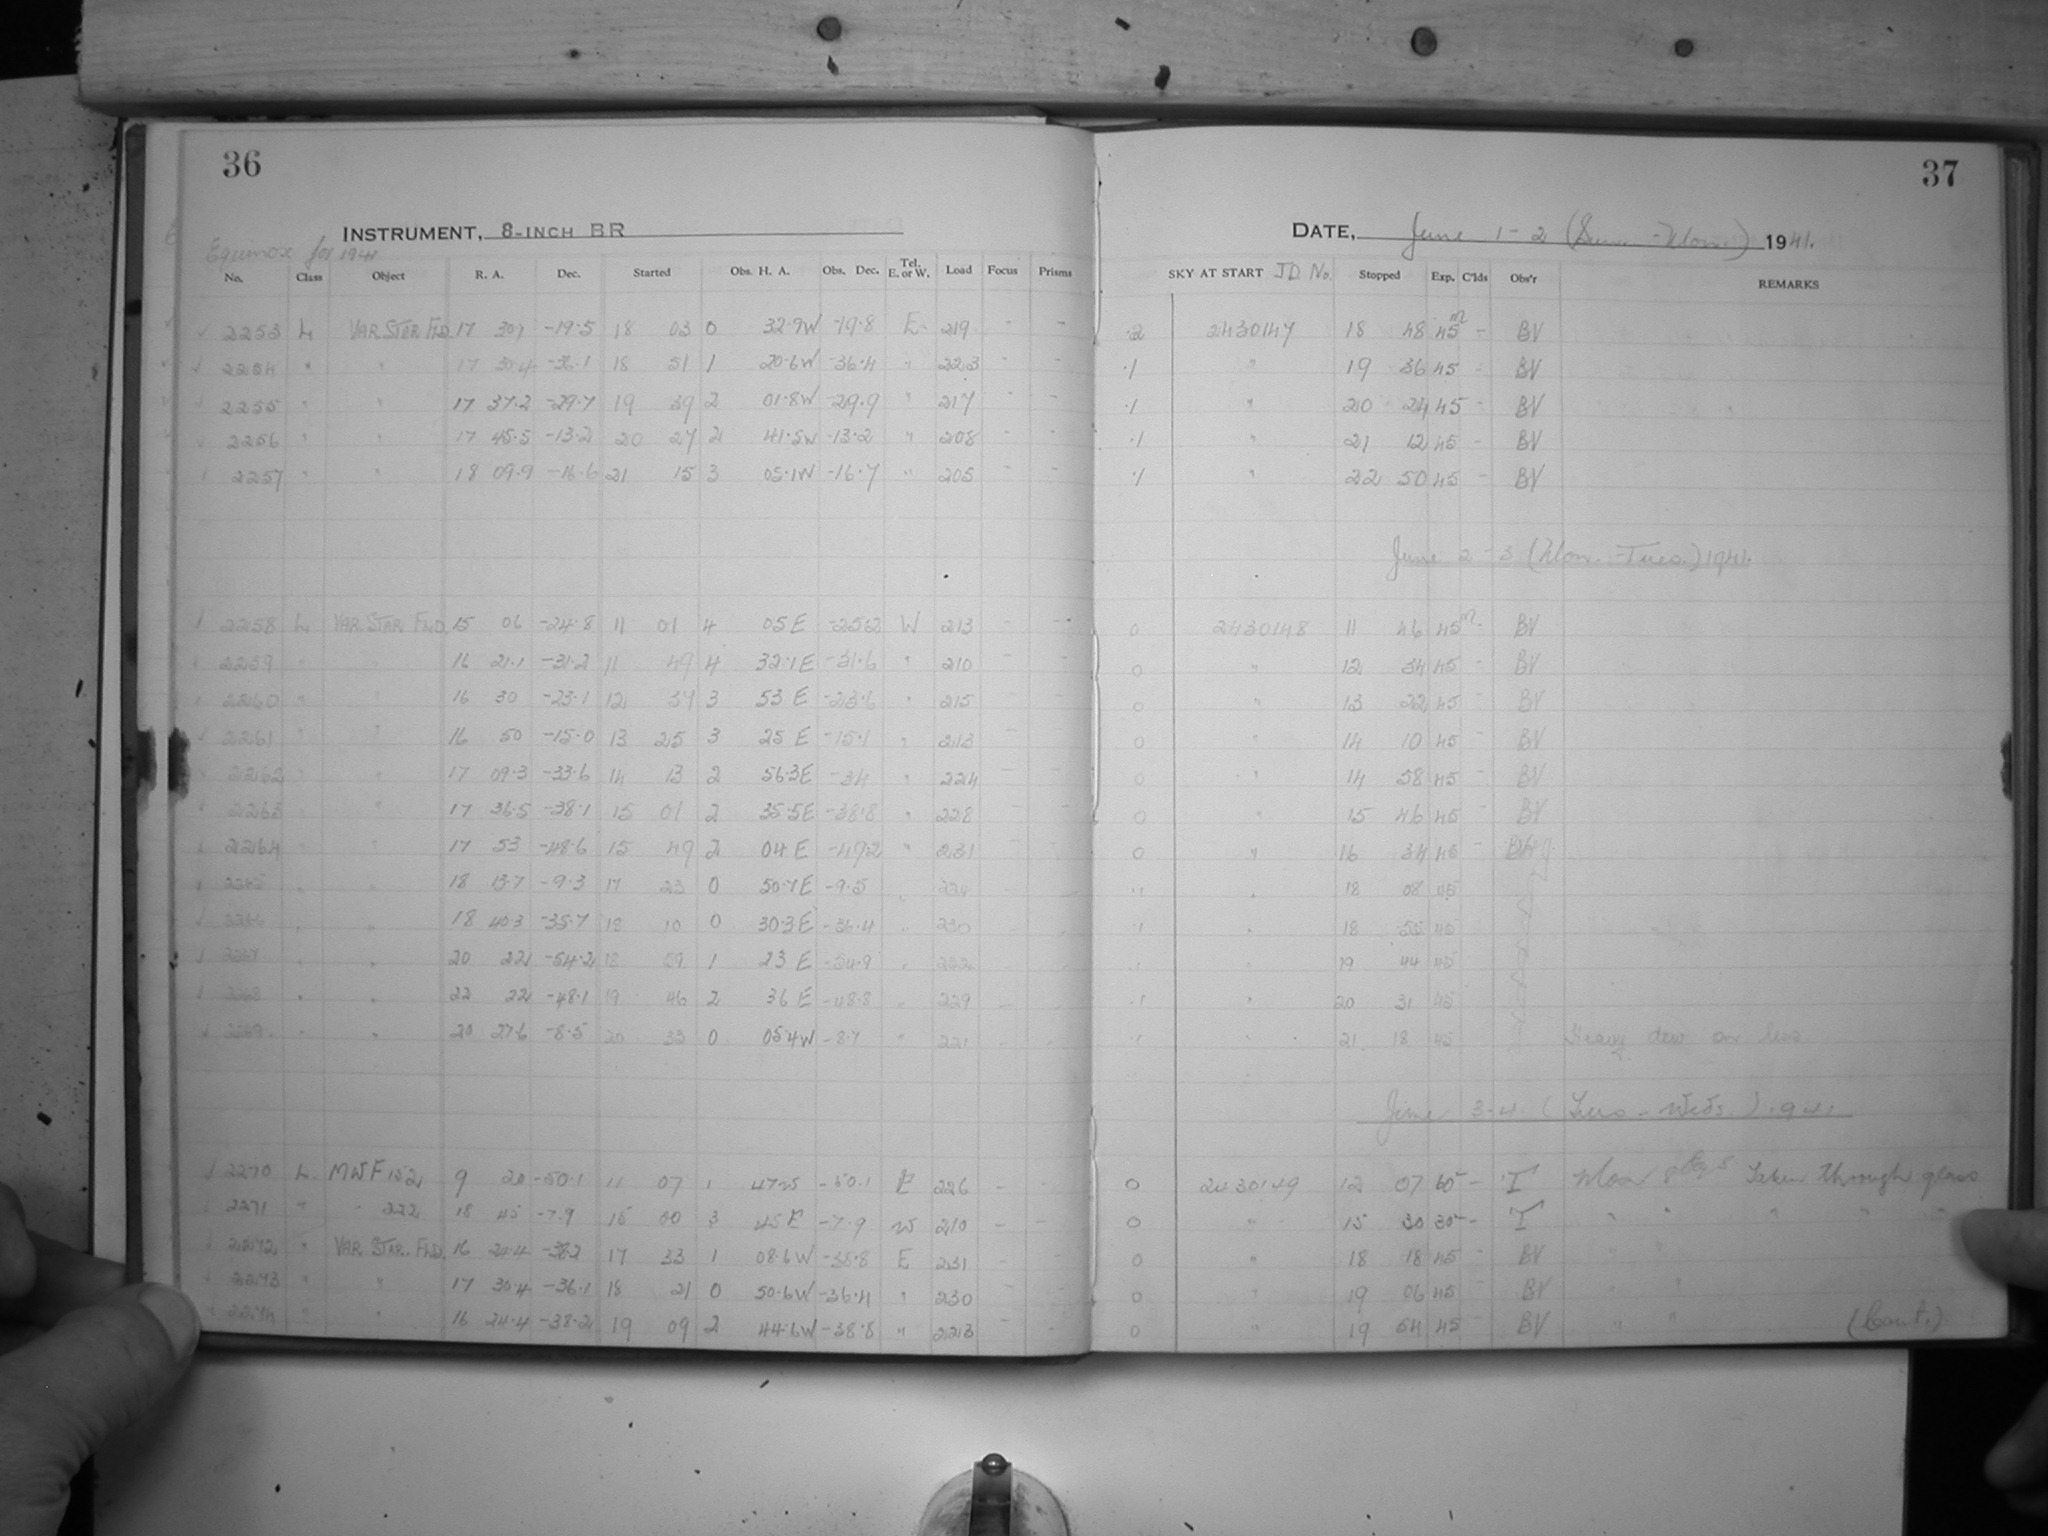 36
37
INSTRUMENT, 8-INCH BR
DATE, June 1-2 (Sun.-Mon.) 1941.
Equinox for 1941
No. Class Object R. A. Dec. Started Obs. H. A. Obs. Dec. Tel. E. or W. Load Focus Prisms SKY AT START JD No. Stopped Exp. C'lds Obs'r REMARKS
✓ 2253 L VAR STAR FLD. 17 30.1 -19.5 18 03 0 32.9W -19.8 E 219 - - .2 2430147 18 48 45m - BV
✓ 2254 " " 17 30.4 -36.1 18 51 1 20.6W -36.4 " 223 - - .1 " 19 36 45 - BV
✓ 2255 " " 17 37.2 -29.7 19 39 2 01.8W -29.9 " 217 - - .1 " 20 24 45 - BV
✓ 2256 " " 17 45.5 -13.2 20 27 2 41.5W -13.2 " 208 - - .1 " 21 12 45 - BV
✓ 2257 " " 18 09.9 -16.6 21 15 3 05.1W -16.7 " 205 - - .1 " 22 50 45 - BV
June 2-3 (Mon.-Tues.) 1941.
✓ 2258 L VAR. STAR FLD. 15 06 -24.8 11 01 4 05 E -25.2 W 213 - - 0 2430148 11 46 45m - BV
✓ 2259 " " 16 21.1 -31.2 11 49 4 32.1E -31.6 " 210 - - 0 " 12 34 45 - BV
✓ 2260 " " 16 30 -23.1 12 37 3 53 E -23.6 " 215 - - 0 " 13 22 45 - BV
✓ 2261 " " 16 50 -15.0 13 25 3 25 E -15.1 " 213 - - 0 " 14 10 45 - BV
✓ 2262 " " 17 09.3 -33.6 14 13 2 56.3E -34 " 224 - - 0 " 14 58 45 - BV
✓ 2263 " " 17 36.5 -38.1 15 01 2 35.5E -38.8 " 228 - - 0 " 15 46 45 - BV
✓ 2264 " " 17 53 -48.6 15 49 2 04 E -49.2 " 231 - - 0 " 16 34 45 -
✓ 2265 " " 18 13.7 -9.3 17 23 0 50.7E -9.5 " 224 - - .1 " 18 08 45
✓ 2266 " " 18 40.3 -35.7 18 10 0 30.3E -36.4 " 230 - - .1 " 18 55 45
✓ 2267 " " 20 22 -54.2 18 59 1 23 E -54.9 " - - .1 " 19 44 45
✓ 2268 " " 22 22 -48.1 19 46 2 36 E -48.8 " 229 - - .1 " 20 31 45
✓ 2269 " " 20 27.6 -8.5 20 33 0 05.4W -8.7 " 221 - - .1 " 21 18 45 Heavy dew on lens.
June 3-4. (Tues-Weds.) 1941.
✓ 2270 L. MWF 152 9 20 -50.1 11 07 1 47W -50.1 E 226 - - 0 2430149 12 07 60 - T Moon Taken through glass
✓ 2271 " " 222 18 45 -7.9 15 00 3 45 E -7.9 W 210 - - 0 " 15 30 30 - T " " " "
✓ 2272 " VAR. STAR. FLD. 16 24.4 -38.2 17 33 1 08.6W -38.8 E 231 - - 0 " 18 18 45 - BV " "
✓ 2273 " " 17 30.4 -36.1 18 21 0 50.6W -36.4 " 230 - - 0 " 19 06 45 - BV " "
✓ 2274 " " 16 24.4 -38.2 19 09 2 44.6W -38.8 " 223 - - 0 " 19 54 45 - BV " " "
(Cont.)